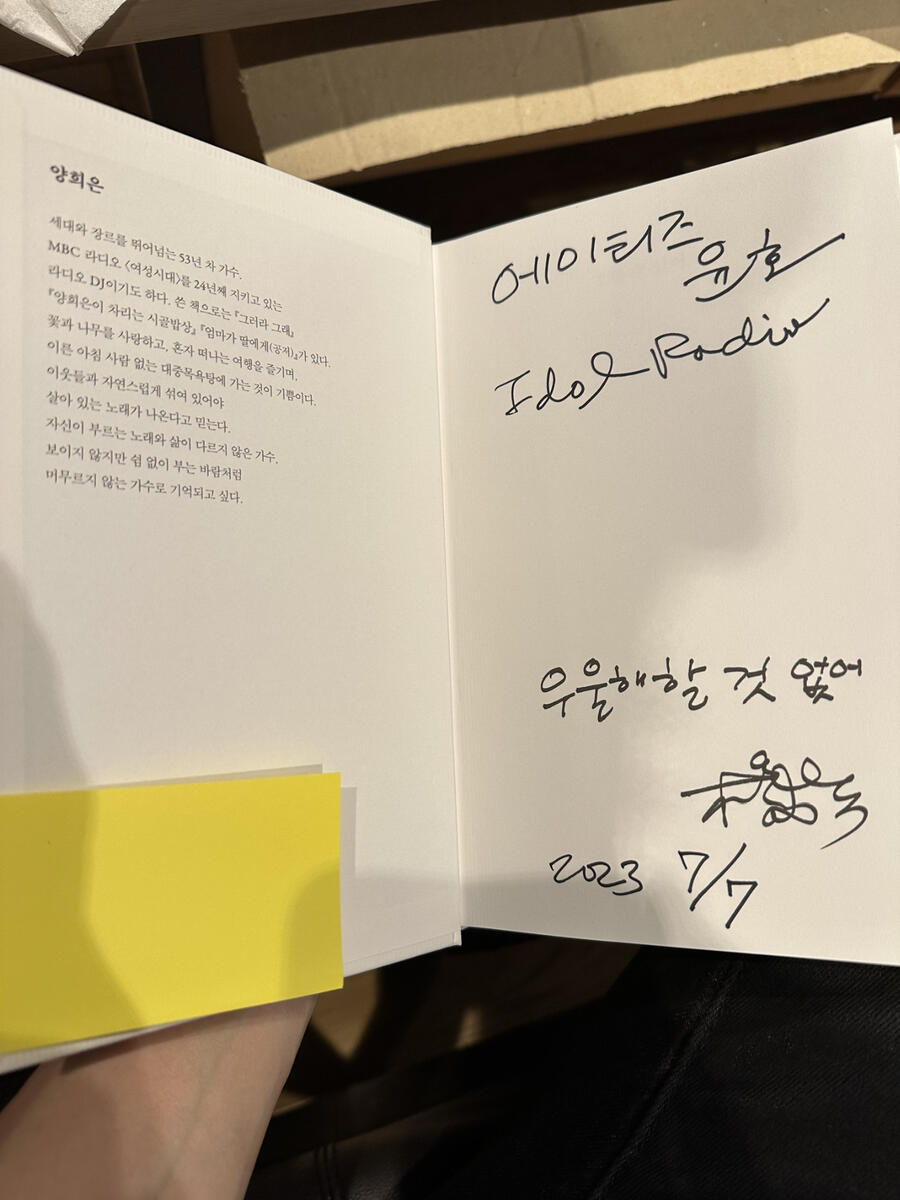 양희은
세대와 장르를 뛰어넘는 53년 차 가수.
MBC 라디오 〈여성시대〉를 24년째 지키고 있는
라디오 DJ이기도 하다. 쓴 책으로는 『그러라 그래』
『양희은이 차리는 시골밥상』 『엄마가 딸에게(공저)』가 있다.
꽃과 나무를 사랑하고, 혼자 떠나는 여행을 즐기며,
이른 아침 사람 없는 대중목욕탕에 가는 것이 기쁨이다.
이웃들과 자연스럽게 섞여 있어야
살아 있는 노래가 나온다고 믿는다.
자신이 부르는 노래와 삶이 다르지 않은 가수.
보이지 않지만 쉼 없이 부는 바람처럼
머무르지 않는 가수로 기억되고 싶다.
에이티즈
윤호
Idol Radio
우울해할 것 없어
2023 7/7